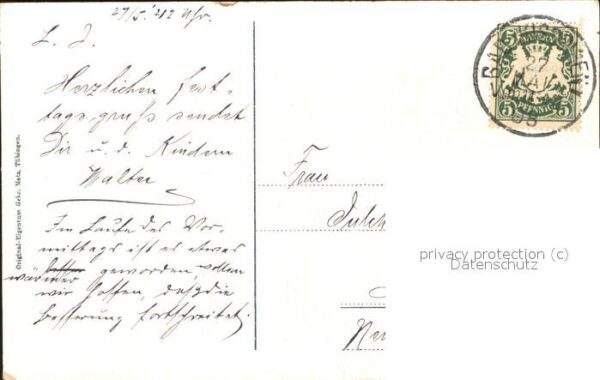 27/5. 212 Uhr.
L. J.
Herzlichen Fest-
tagsgruß sendet
Dir u. d. Kindern
Walter
Im Laufe des Vor-
mittags ist es etwas
wärmer geworden wollen
wir hoffen, daß die
Besserung fortschreitet.
Original-Eigentum Gebr. Metz, Tübingen.
BAYERN
5 5
5 5
PFENNIG
27
MAI
Frau
privacy protection (c)
Datenschutz